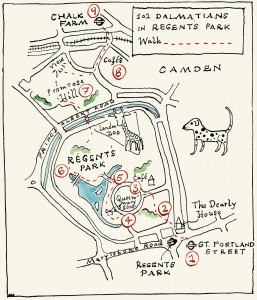 101 DALMATIANS
IN REGENTS PARK
Walk
9
CHALK
FARM
Café
8
CAMDEN
View
Primrose
Hill
7
PRINCE ALBERT ROAD
London
Zoo
REGENTS
PARK
6
5
Café
3
Queen
Mary
Gdns
4
2
The Dearly
House
Marylebone Road
REGENTS
PARK
GT. PORTLAND
STREET
1